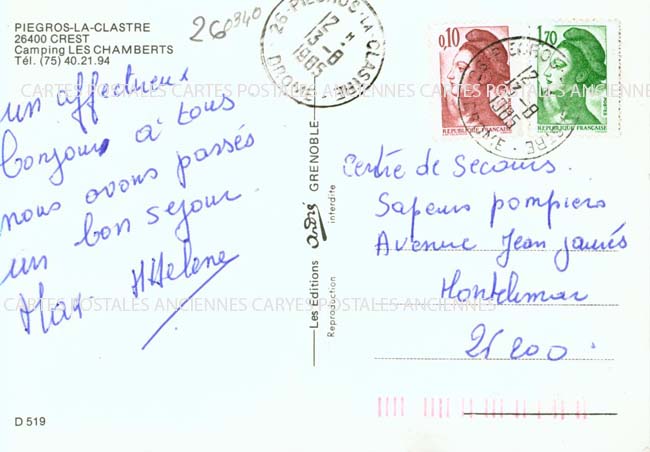 PIEGROS-LA-CLASTRE
26400 CREST
Camping LES CHAMBERTS
Tél. (75) 40.21.94
260340
26 PIEGROS-LA CLASTRE
12 H
13-8
1985
DROME
0,10
REPUBLIQUE FRANÇAISE
1,70
POSTES
REPUBLIQUE FRANÇAISE
12 H
13-8
1985
un affectueux
bonjour à tous
nous avons passés
un bon séjour.
Max. MHelene
Les Editions André GRENOBLE
Reproduction interdite
Centre de Secours.
Sapeurs pompiers
Avenue Jean jaurés
Montelimar
26200
CARTES POSTALES ANCIENNES CARTES POSTALES ANCIENNES
CARTES POSTALES ANCIENNES CARYES POSTALES ANCIENNES
D 519